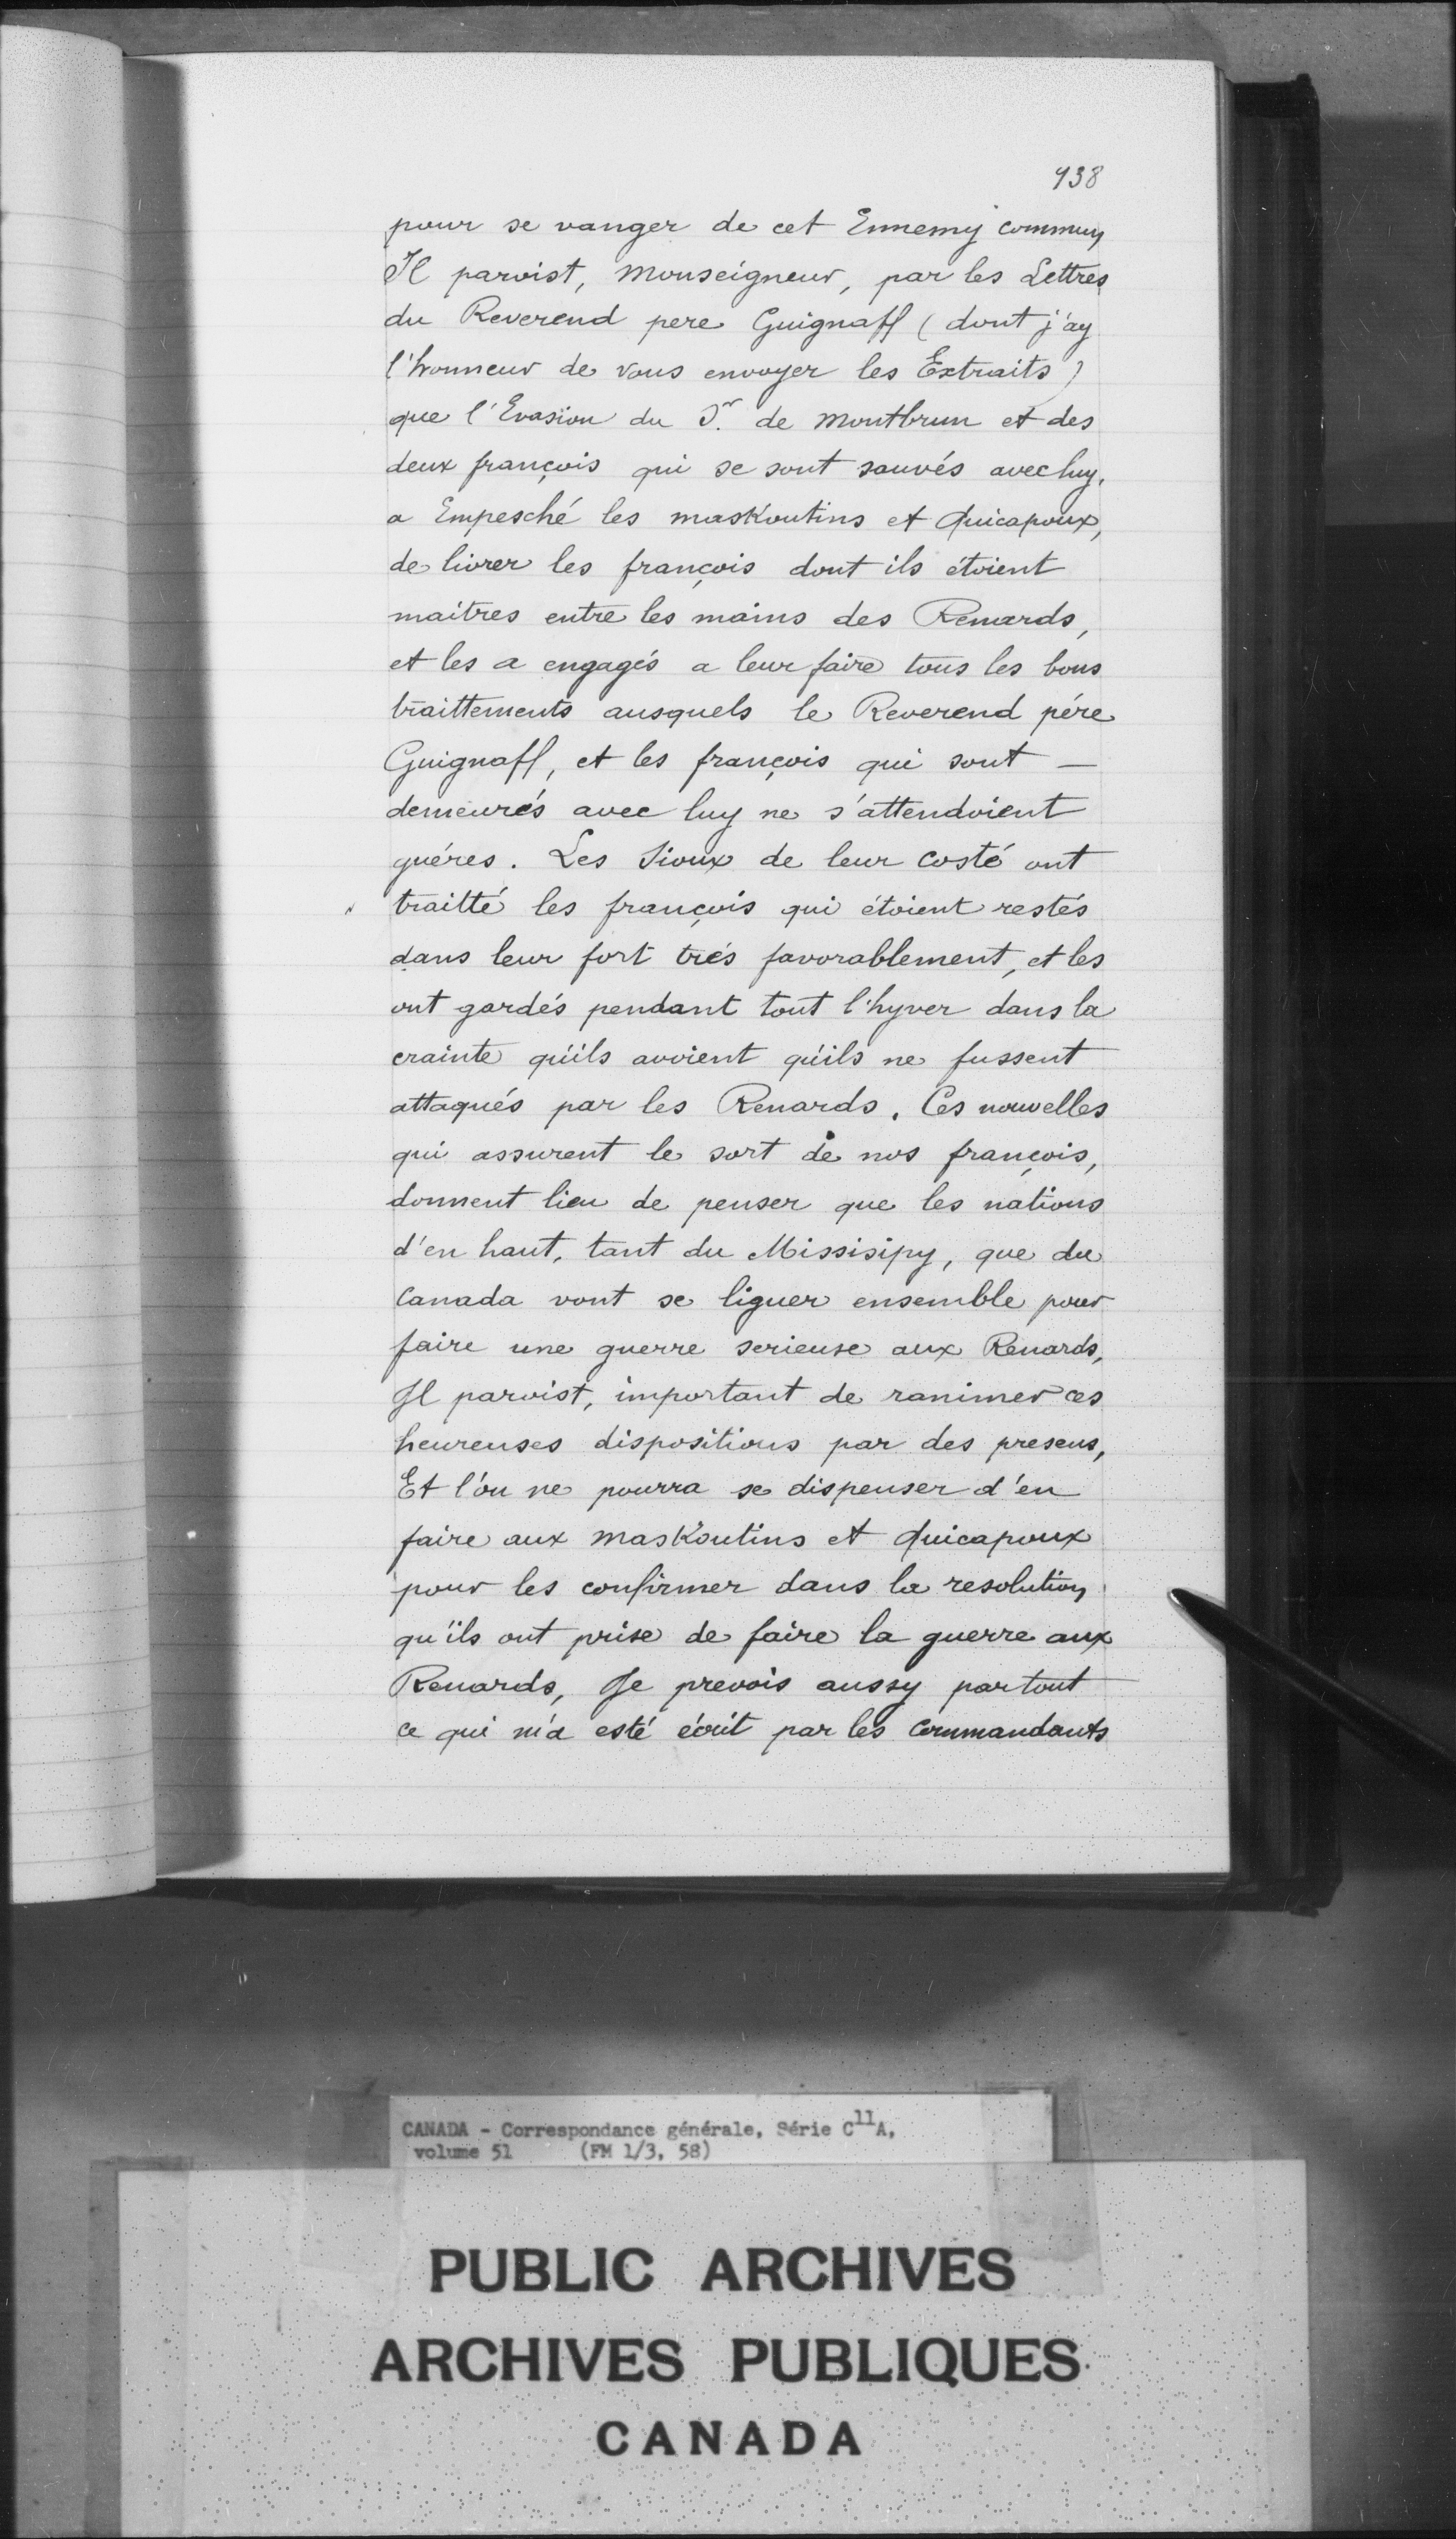 938
pour se vanger de cet Ennemy commun
Il paroist, Monseigneur, par les Lettres
du Reverend pere Guignaff (dont j'ay
l'honneur de vous envoyer les Extraits)
que l'Evasion du Sr. de Montbrun et des
deux françois qui se sont sauvés avec luy,
a Empesché les maskoutins et quicapoux,
de livrer les françois dont ils étoient
maitres entre les mains des Renards,
et les a engagés a leur faire tous les bons
traittements ausquels le Reverend pére
Guignaff, et les françois qui sont —
demeurés avec luy ne s'attendoient
guéres. Les Sioux de leur costé ont
traitté les françois qui étoient restés
dans leur fort trés favorablement, et les
ont gardés pendant tout l'hyver dans la
crainte qu'ils avoient qu'ils ne fussent
attaqués par les Renards. Ces nouvelles
qui assurent le sort de nos françois,
donnent lieu de penser que les nations
d'en haut, tant du Missisipy, que du
Canada vont se liguer ensemble pour
faire une guerre serieuse aux Renards,
Il paroist, important de ranimer ces
heureuses dispositions par des presens,
Et l'on ne pourra se dispenser d'en
faire aux maskoutins et quicapoux
pour les confirmer dans la resolution
qu'ils ont prise de faire la guerre aux
Renards, Je prevois aussy par tout
ce qui m'a esté écrit par les Commandants
CANADA - Correspondance générale, Série C11A,
volume 51 (FM 1/3, 58)
PUBLIC ARCHIVES
ARCHIVES PUBLIQUES
CANADA